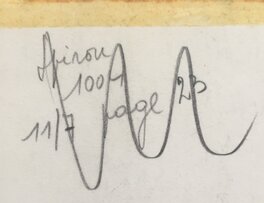 Spirou
1007
11/7 page 23